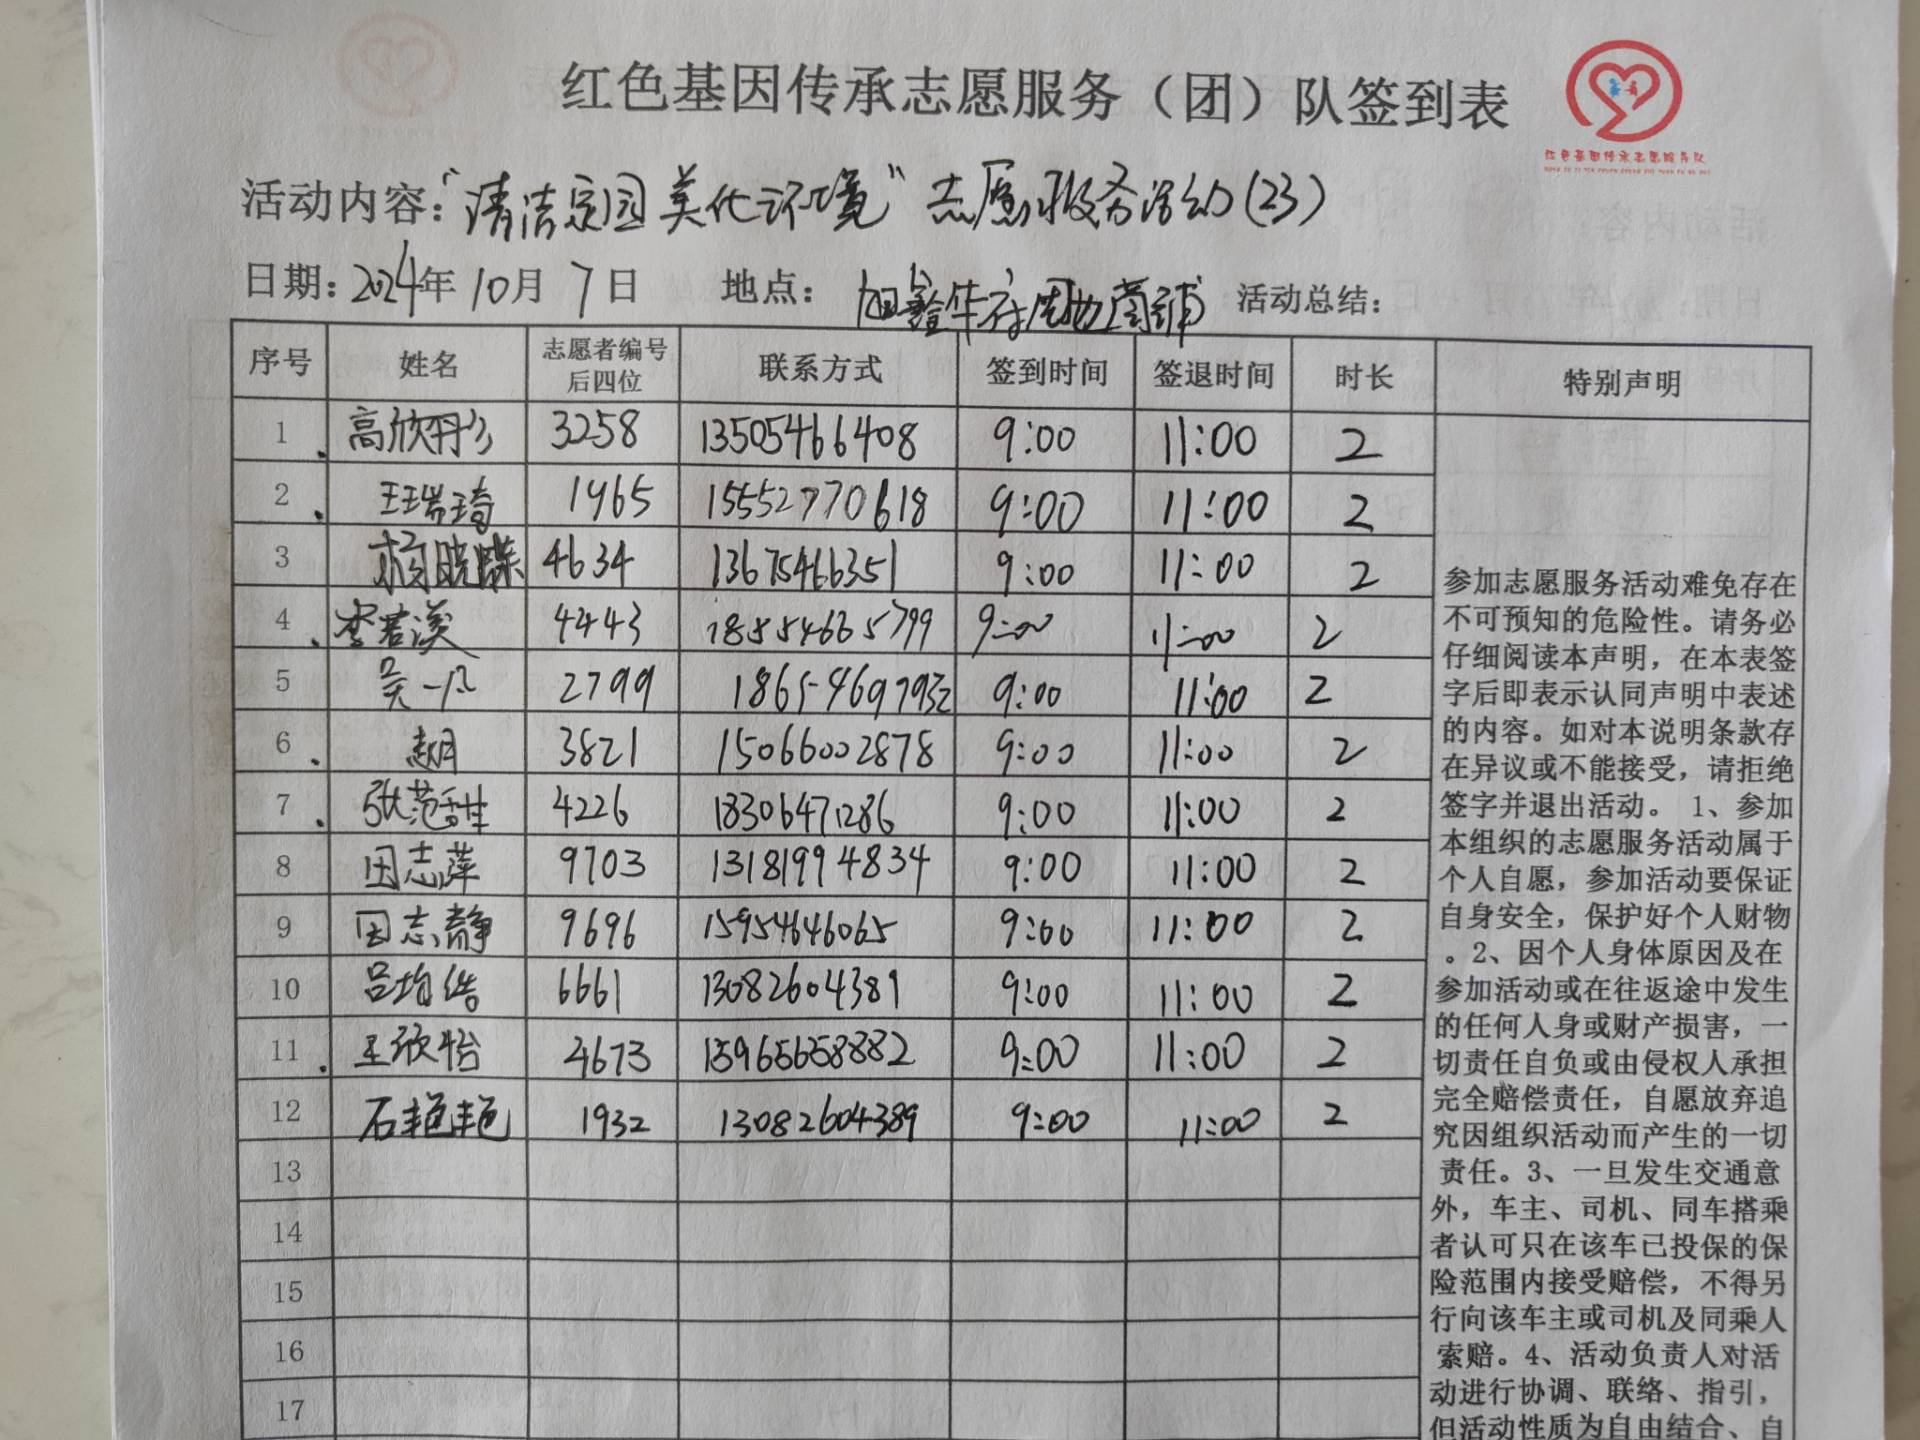 红色基因传承志愿服务（团）队签到表
红色基因传承志愿服务队
活动内容："清洁家园 美化环境"志愿服务活动(23)
日期：2024年10月7日 地点：旭鑫华府周边商铺 活动总结：
序号 姓名 志愿者编号后四位 联系方式 签到时间 签退时间 时长 特别声明
1 高欣彤 3258 13505466408 9:00 11:00 2
2 王瑞琦 1965 15552770618 9:00 11:00 2
3 杨晓蝶 4634 13675466351 9:00 11:00 2
4 李若溪 4443 18554665799 9:00 11:00 2
5 吴一凡 2799 18654697932 9:00 11:00 2
6 3821 15066002878 9:00 11:00 2
7 张范甡 4226 18306471286 9:00 11:00 2
8 田志萍 9703 13181994834 9:00 11:00 2
9 田志静 9696 15954646065 9:00 11:00 2
10 吕均浩 6661 13082604389 9:00 11:00 2
11 王欣怡 4673 15965658882 9:00 11:00 2
12 石艳艳 1932 13082604389 9:00 11:00 2
13
14
15
16
17
参加志愿服务活动难免存在
不可预知的危险性。请务必
仔细阅读本声明，在本表签
字后即表示认同声明中表述
的内容。如对本说明条款存
在异议或不能接受，请拒绝
签字并退出活动。 1、参加
本组织的志愿服务活动属于
个人自愿，参加活动要保证
自身安全，保护好个人财物
。2、因个人身体原因及在
参加活动或在往返途中发生
的任何人身或财产损害，一
切责任自负或由侵权人承担
完全赔偿责任，自愿放弃追
究因组织活动而产生的一切
责任。3、一旦发生交通意
外，车主、司机、同车搭乘
者认可只在该车已投保的保
险范围内接受赔偿，不得另
行向该车主或司机及同乘人
索赔。4、活动负责人对活
动进行协调、联络、指引，
但活动性质为自由结合、自